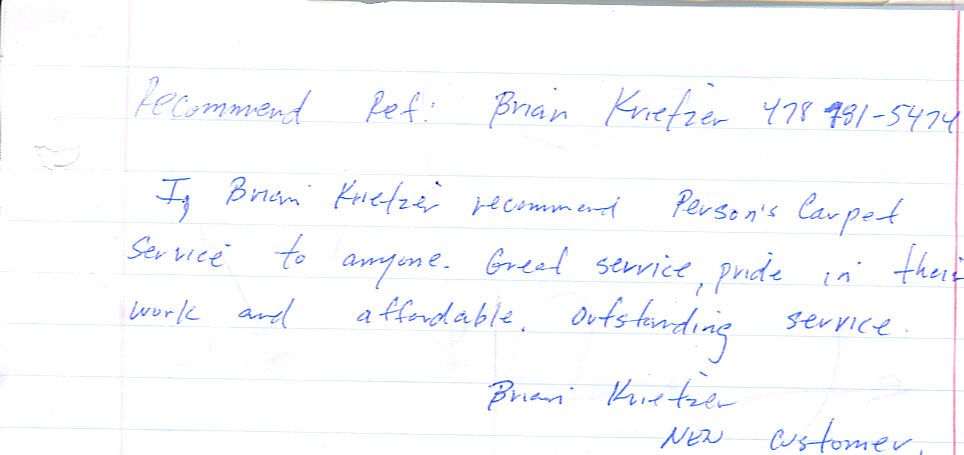 Recommend Ref: Brian Krietzer 478 781-5474
I, Brian Krietzer recommend Person's Carpet
Service to anyone. Great service, pride in their
work and affordable. Outstanding service.
Brian Krietzer
New Customer.